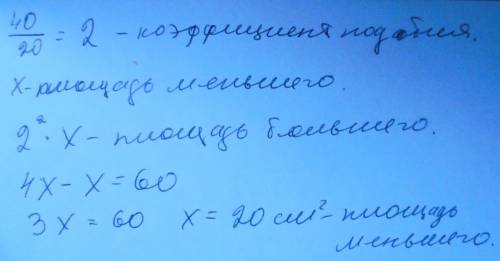 40/20 = 2 - коэффициент подобия.
x - площадь меньшего.
2² · x - площадь большего.
4x - x = 60
3x = 60 x = 20 см² - площадь
меньшего.